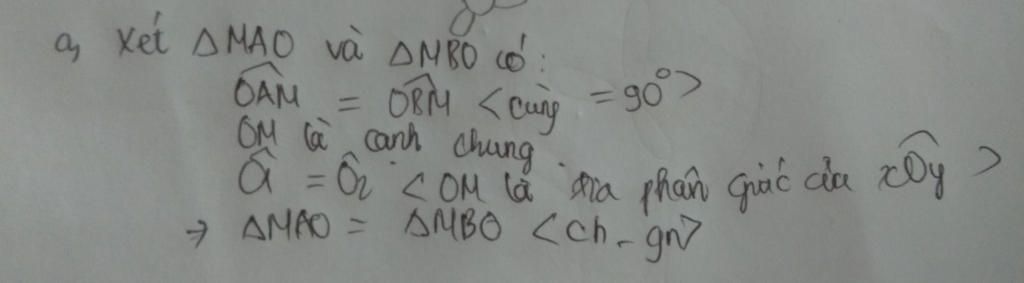 a, Xét ΔMAO và ΔMBO có:
OÂM = OB̂M <cùng = 90°>
OM là cạnh chung.
Ô1 = Ô2 <OM là tia phân giác của xÔy>
→ ΔMAO = ΔMBO <ch-gn>